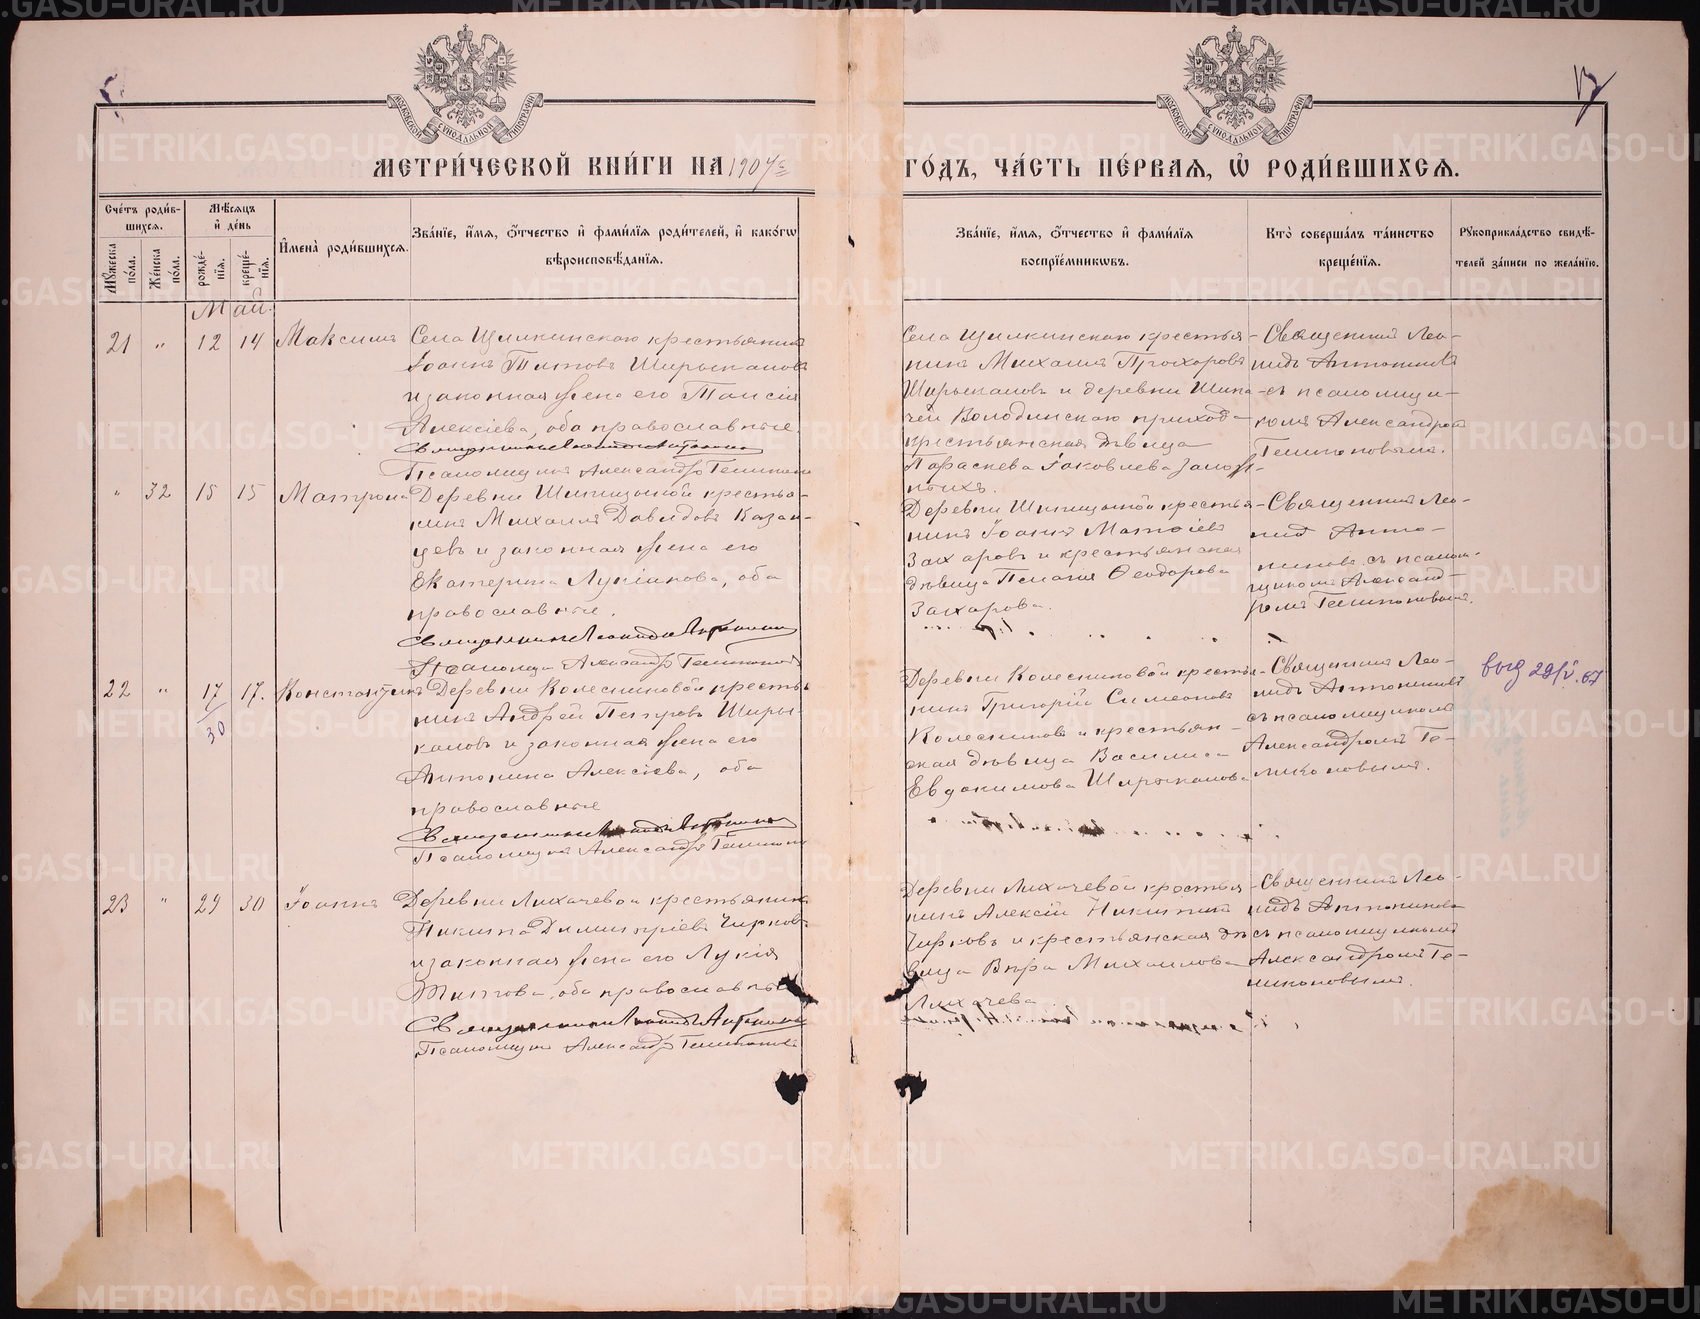 МОСКОВСКОЙ СѴНОДАЛЬНОЙ ТИПОГРАФИИ
МОСКОВСКОЙ СѴНОДАЛЬНОЙ ТИПОГРАФИИ
МЕТРИ́ЧЕСКОЙ КНИ́ГИ НА 1907 г. ГО́ДЪ, ЧА́СТЬ ПЕ́РВАѦ, Ѡ҆ РОДИ́ВШИХСѦ.
Сче́тъ роди́в-
шихсѧ.
Мꙋ́жеска по́ла.
Же́нска по́ла.
Мѣ́сѧцъ
и҆ де́нь
рожде́-
нїѧ.
креще́-
нїѧ.
И҆мена̀ роди́вшихсѧ.
Зва́нїе, и҆́мѧ, ѻ҆́тчество и҆ фами́лїѧ роди́телей, и҆ како́гѡ
вѣроисповѣ́данїѧ.
Зва́нїе, и҆́мѧ, ѻ҆́тчество и҆ фами́лїѧ
воспрїе́мникѡвъ.
Кто̀ соверша́лъ та́инство
креще́нїѧ.
Рꙋкоприкла́дство свидѣ́-
телей за́писи по жела́нїю.
Май.
21 " 12 14 Максимъ
Села Щипкинскаго крестьянинъ
Іоаннъ Титовъ Ширыкаловъ
и законная жена его Таисія
Алексіева, оба православные.
Священникъ Леонидъ Антониновъ
Псаломщикъ Александръ
Села Щипкинскаго крестья-
нинъ Михаилъ Прохоровъ
Ширыкаловъ и деревни
Володинскаго прихода
крестьянская дѣвица
Параскева Іаковлева
Священникъ Лео-
нидъ Антониновъ
съ псаломщи-
комъ Александромъ
" 32 15 15 Матрона
Деревни Шипицыной крестья-
нинъ Михаилъ Давидовъ Казан-
цевъ и законная жена его
Екатерина Лукіанова, оба
православные.
Священникъ Леонидъ Антониновъ
Псаломщикъ Александръ
Деревни Шипицыной крестья-
нинъ Іоаннъ
Захаровъ и крестьянская
дѣвица Пелагія Ѳеодорова
Захарова.
Священникъ Лео-
нидъ Анто-
ниновъ съ псалом-
щикомъ Александ-
ромъ
22 " 17 17. Константинъ
30
Деревни Колесниковой крестья-
нинъ Андрей Петровъ Ширы-
каловъ и законная жена его
Антонина Алексіева, оба
православные
Священникъ Леонидъ Антониновъ
Псаломщикъ Александръ
Деревни Колесниковой крестья-
нинъ Григорій Симеоновъ
Колесниковъ и крестьян-
ская дѣвица Василиса
Евдокимова Ширыкалова
Священникъ Лео-
нидъ Антониновъ
съ псаломщикомъ
Александромъ
выд 29/V.67
23 " 29 30 Іоаннъ
Деревни Лихачевой крестьянинъ
Никита Димитріевъ Чирковъ
и законная жена его Лукія
Титова, оба православные
Священникъ Леонидъ Антониновъ
Псаломщикъ Александръ
Деревни Лихачевой крестья-
нинъ Алексій Никитинъ
Чирковъ и крестьянская дѣ-
вица Вѣра Михаилова
Лихачева.
Священникъ Лео-
нидъ Антониновъ
съ псаломщикомъ
Александромъ
METRIKI.GASO-URAL.RU